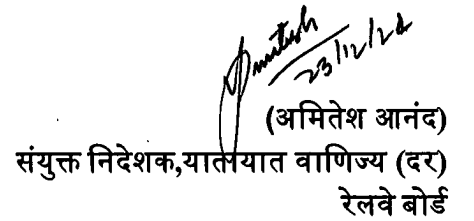 Amitesh
23/12/24
(अमितेश आनंद)
संयुक्त निदेशक,यातायात वाणिज्य (दर)
रेलवे बोर्ड